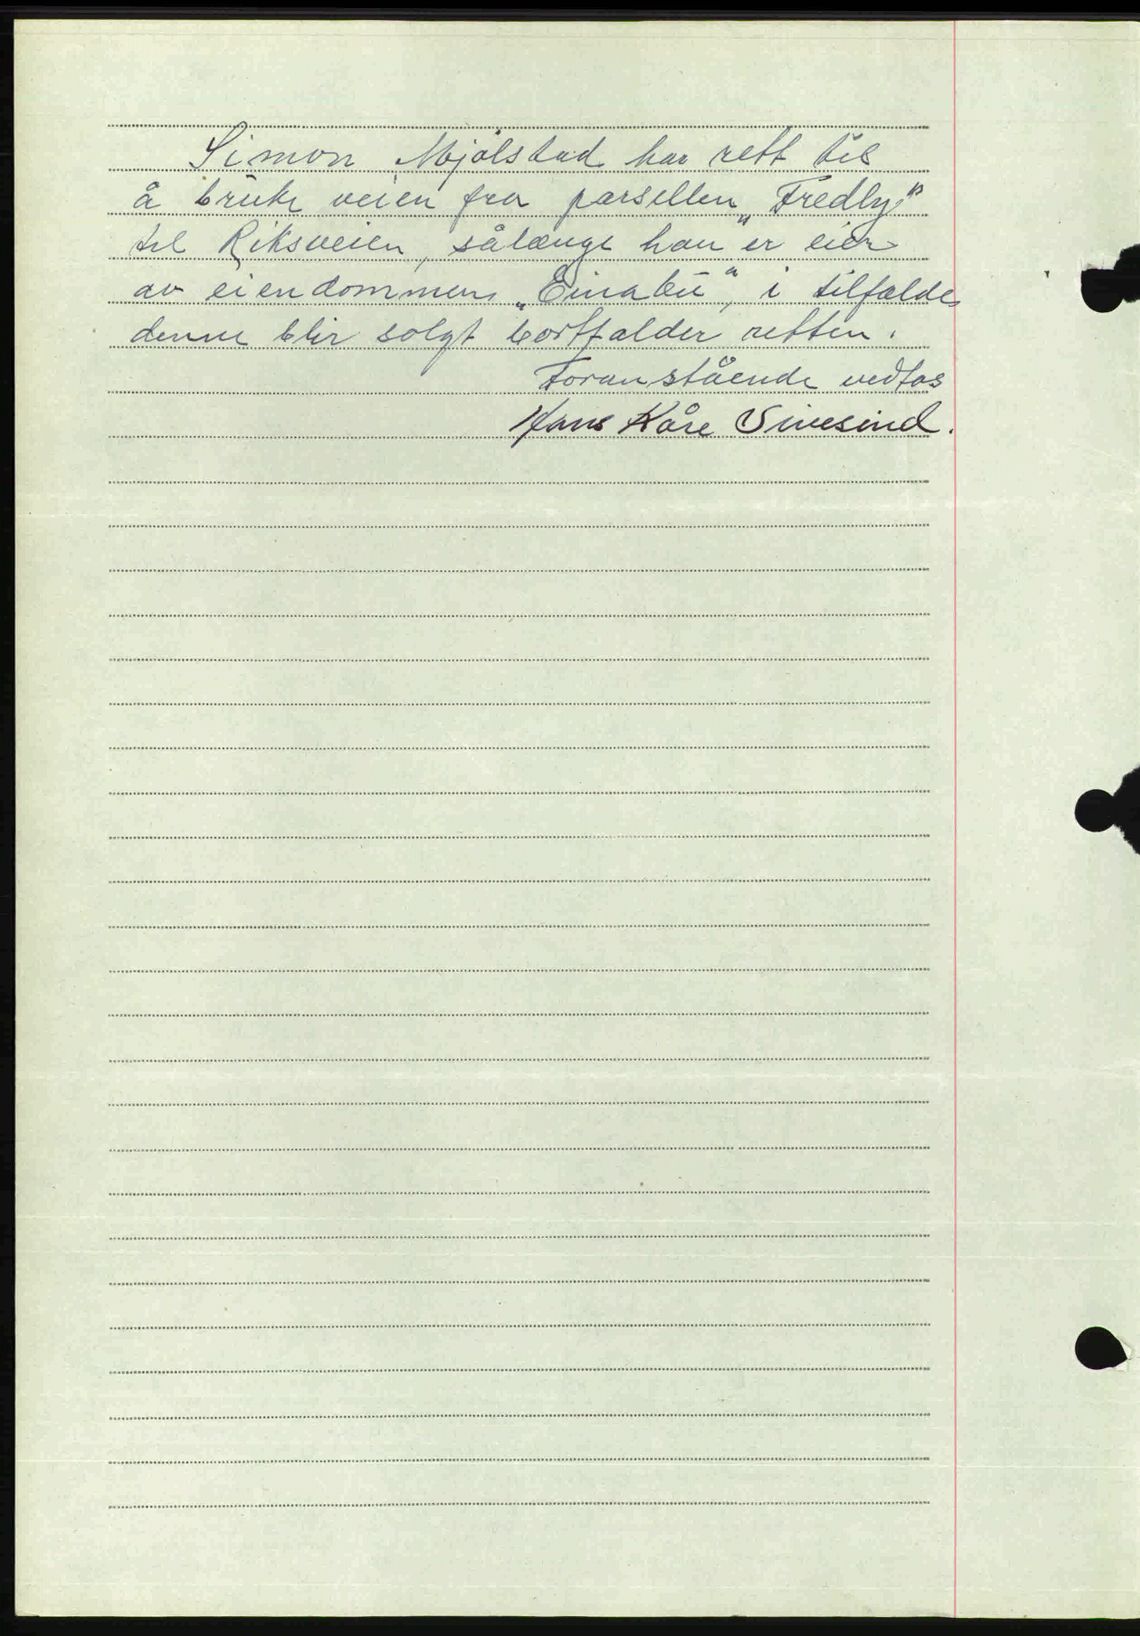 Simon Mjølstad har rett til
å bruke veien fra parsellen „Fredly"
til Riksveien, sålænge han er eier
av eiendommen „Einabu", i tilfælde
denne blir solgt bortfalder retten.
Foranstående vedtas
Hans Kåre Sivesind.